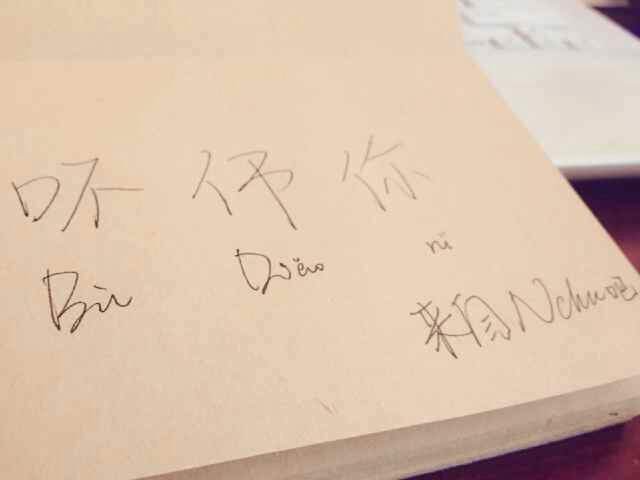 吥 伃 你
Bù Diǎo nǐ
来自Nchu吧